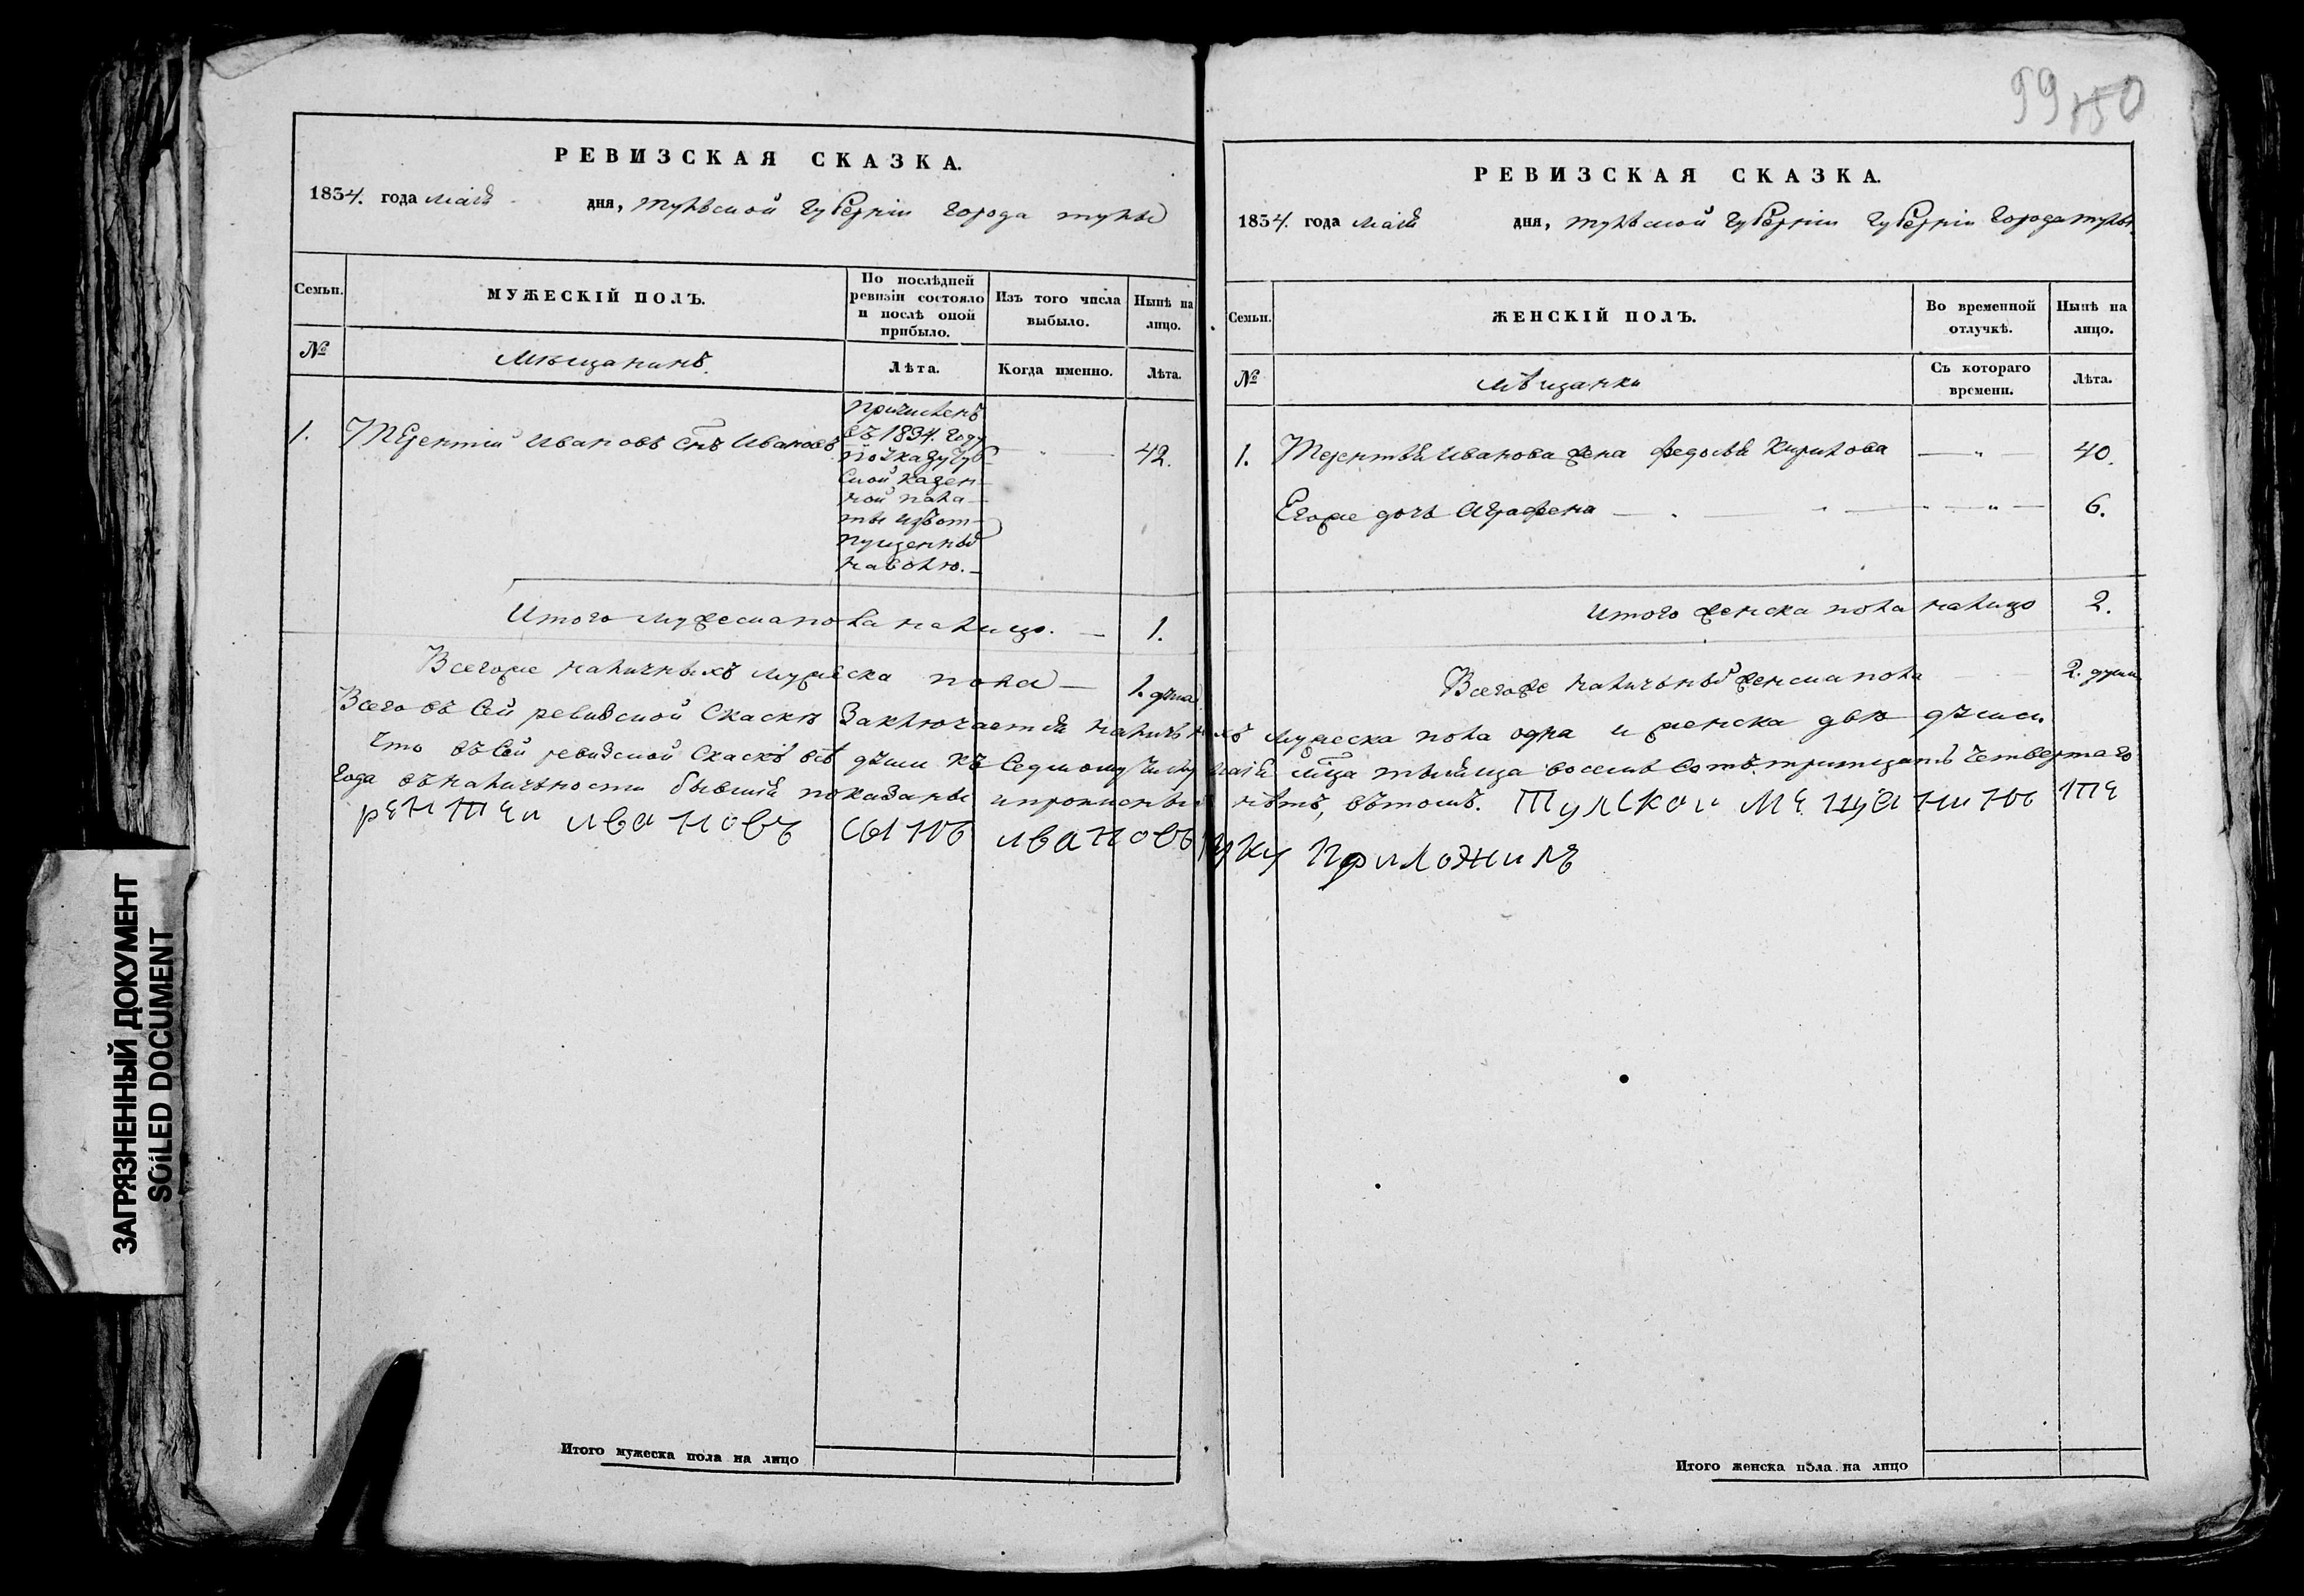 99 150
РЕВИЗСКАЯ СКАЗКА.
1834. года маія дня, тульской губерніи города тулы
Семьи.
МУЖЕСКІЙ ПОЛЪ.
По послѣдней ревизіи состояло и послѣ оной прибыло.
Изъ того числа выбыло.
Нынѣ на лицо.
№
Мѣщанинъ.
Лѣта.
Когда именно.
Лѣта.
1. Терентій Ивановъ снъ Ивановъ
причисленъ
въ 1834. году
по указу губ
ской казен
ной пала
ты изъ от
пущенныхъ
на волю.
42.
Итого мужеска пола на лицо. 1.
Всегоже наличныхъ мужеска пола 1. душа
РЕВИЗСКАЯ СКАЗКА.
1834. года маія дня, тульской губерніи губерніи города тулы
Семьи.
ЖЕНСКІЙ ПОЛЪ.
Во временной отлучкѣ.
Нынѣ на лицо.
№
мѣщанки
Съ котораго времени.
Лѣта.
1. Терентья Иванова жена Федосья Кирилова 40.
Егоже дочь Аграфена 6.
Итого женска пола на лицо 2.
Всегоже наличный женска пола 2. души
Всего въ сей ревиской скаскѣ заключается наличныхъ мужеска пола одна и женска двѣ души.
что въ сей ревиской скаскѣ всѣ души къ седмому числу маія мца тысяща восемь сотъ тритцать четвертаго
года въ наличности бывшія показаны и прописныхъ нѣтъ, въ томъ. Тулскои мещенинъ Те
рентеи ивановъ сынъ ивановъ руку приложилъ
Итого мужеска пола на лицо
Итого женска пола на лицо
ЗАГРЯЗНЕННЫЙ ДОКУМЕНТ
SOILED DOCUMENT